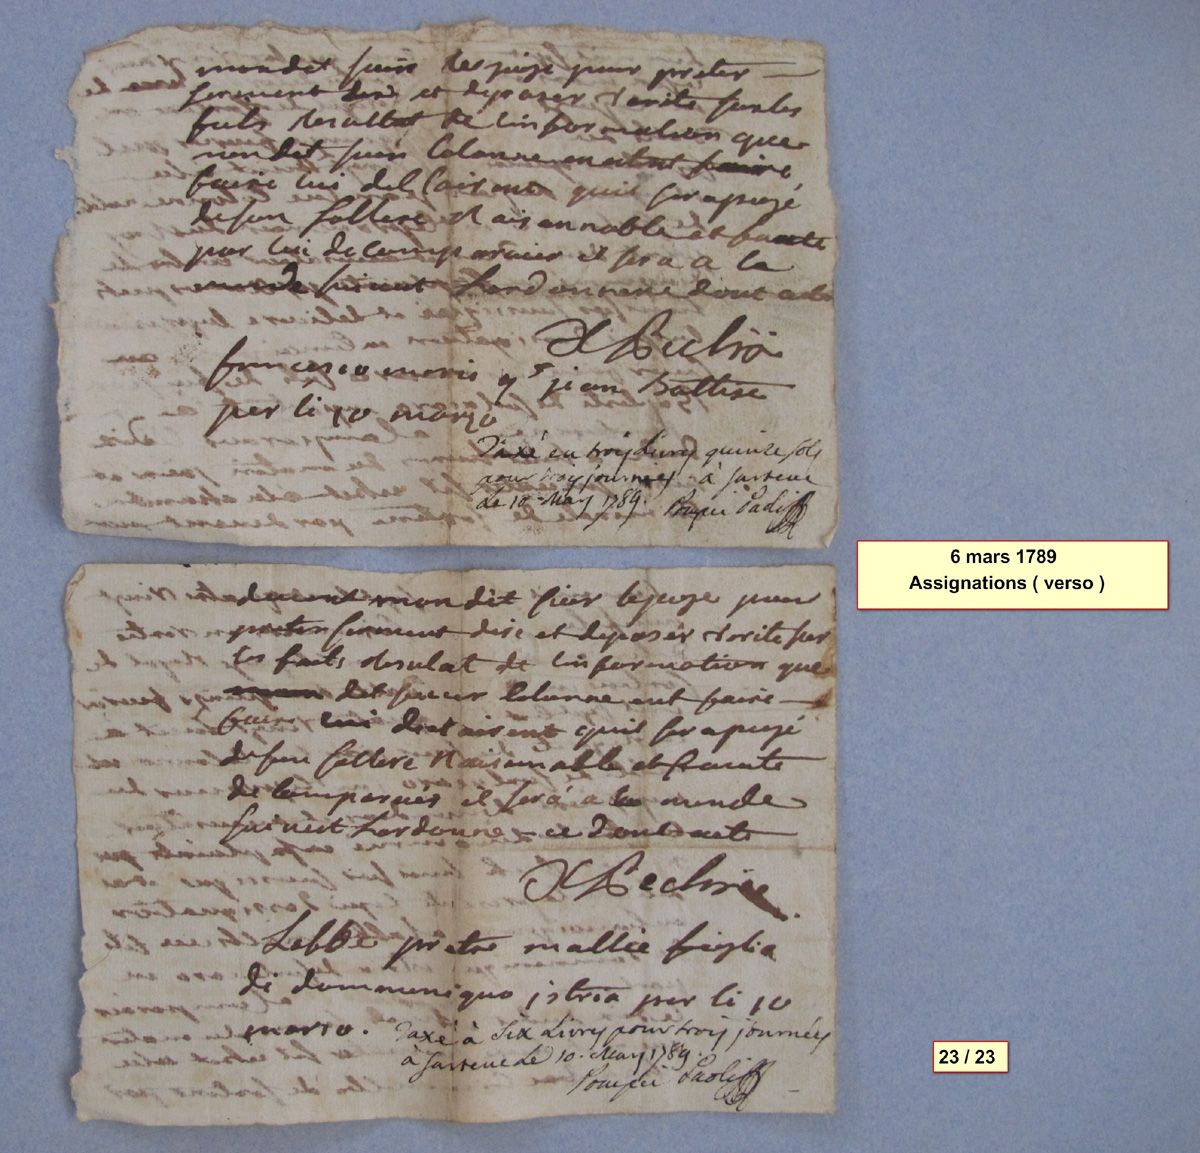 mondit sieur le juge pour preter
serement dire et deposer verite sur les
faits resultat de l'information que
mondit sieur Colonne entent faire
faire lui declairent quil sera payé
de son sallere raisonnable et faute
par lui de comparoier il sera a la
mende suivent Lordonnence dont acte
francesco maris qm jean Battiste
per li 10 marzo
Taxé en trois Livres quinze sols
pour trois journées à Sartene
Le 10 Mars 1789. Pompei Paoli
devent mondit sieur le juge pour
preter serement dire et deposer verite sur
les faits resulat de linformation que
dit sieur Colonne ent faire
faire lui declairent quil sera payé
de son sallere raisonnable et faute
de comparoir il sera a la mende
suivent Lordonnence dont acte
Labbé pretre mattie figlia
di dommeniquo jstria per li 10
marzo.
Taxé à Six Livres pour trois journées
à Sartene Le 10 Mars 1789.
Pompei Paoli
6 mars 1789
Assignations ( verso )
23 / 23